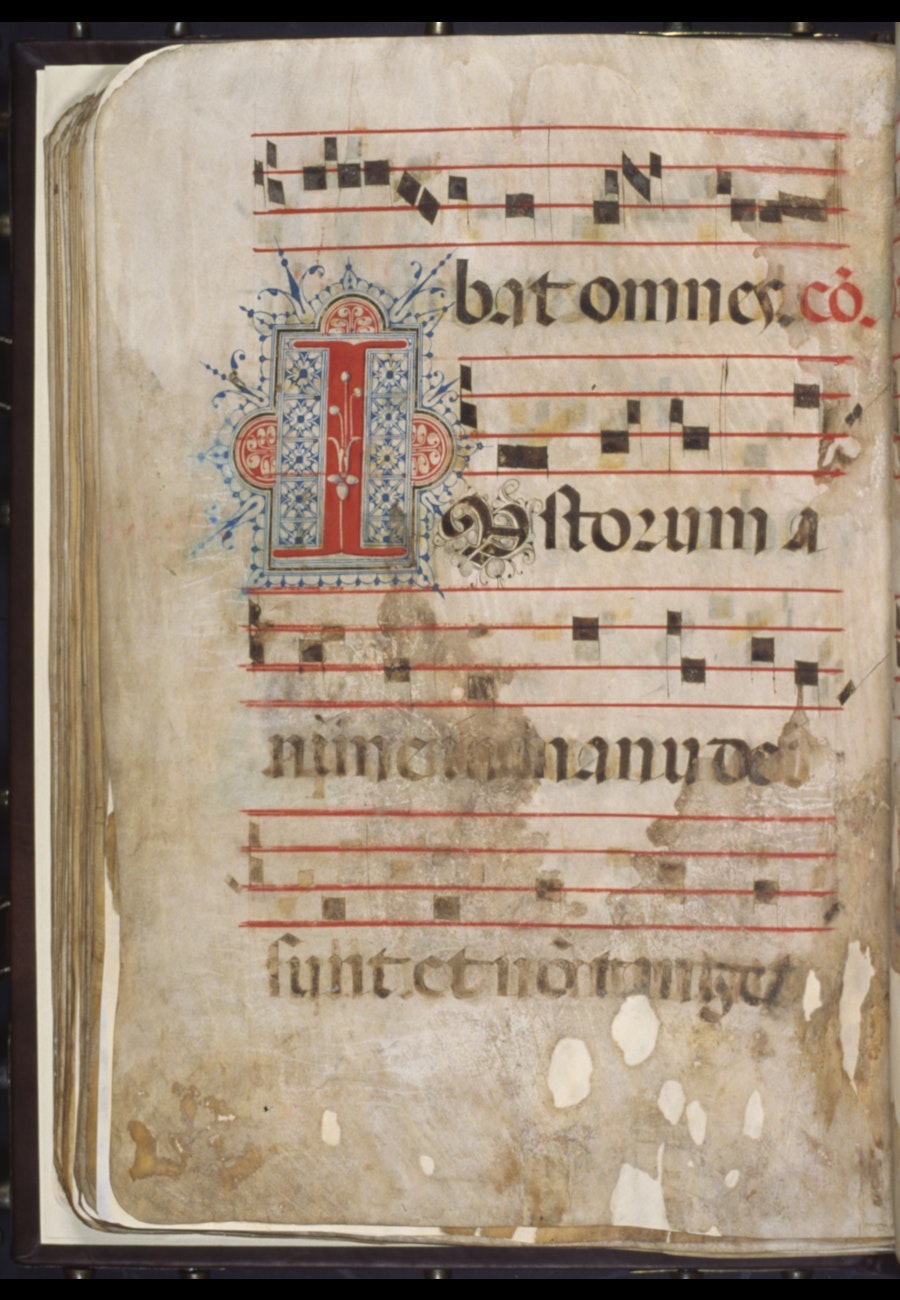 bat omnes. cō.
IUstorum a
nime in manu dei
sunt. et nō tanget